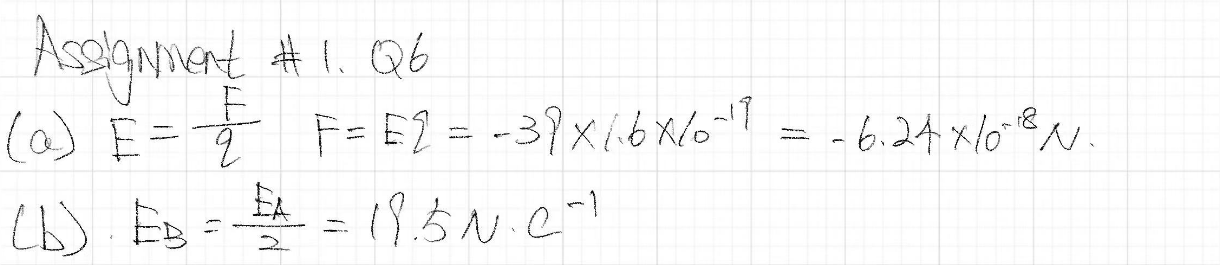 Assignment # 1. Q6
(a) E = F/q F = Eq = -39 × 1.6 × 10⁻¹⁹ = -6.24 × 10⁻¹⁸ N.
(b). E_B = E_A/2 = 19.5 N·C⁻¹